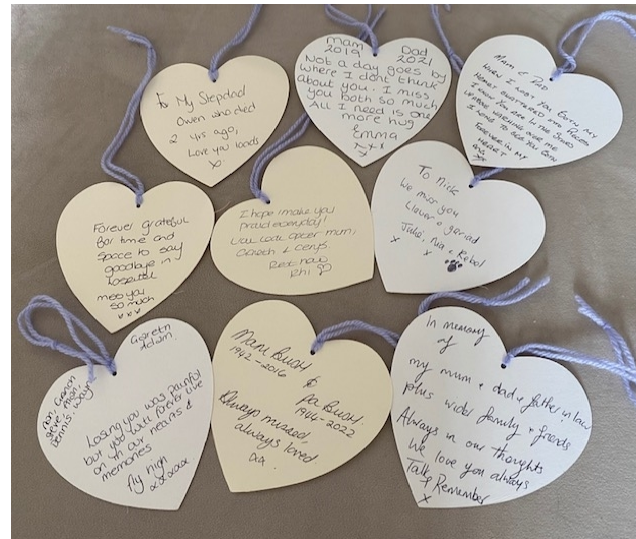 To My Stepdad
Owen who died
2 yrs ago,
Love you loads
xo.
Mam Dad
2019 2021
Not a day goes by
where I dont think
about you. I miss
you both so much
All I need is one
more hug
Emma
xxx
Mam & Dad
When I lost you Both my
Heart shattered into pieces
I know you are in the stars
up above watching over me
I long to see you Both
Forever in my
Heart
Forever grateful
for time and
space to say
goodbye in
hospital
miss you
so much
xxx
I hope I make you
proud everyday!
Will look after mum,
Gareth & Cerys.
Rest now
Rhi
To Nick
We miss you
Llawer o gariad
Julie, Nia & Rebel
x x
Gareth
Adam.
Losing you was painful
but you will forever live
on in our hearts &
memories
Mam Bush
1942-2016
&
Pa Bush.
1944-2022
Always missed,
always loved.
xx.
In memory
of
my mum & dad & father in law
plus wider family & friends
Always in our thoughts
We love you always
Talk & Remember
x